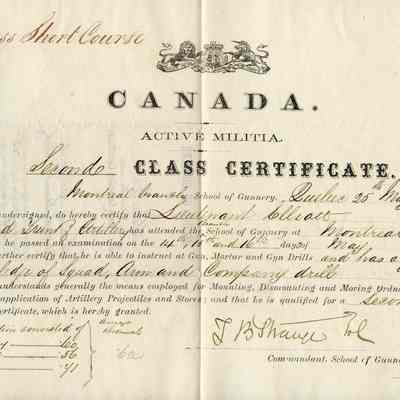 Short Course
CANADA.
ACTIVE MILITIA.
Second CLASS CERTIFICATE.
Montreal branch School of Gunnery, Quebec 25th
undersigned, do hereby certify that Lieutenant Elliott
has attended the School of Gunnery at Montreal
he passed an examination on the 14th, 15th and 16th days of May
further certify that he is able to instruct at Gun, Mortar and Gyn Drills and has a
of Squad, Arm and Company drill
understands generally the means employed for Mounting, Dismounting and Moving Ordn
application of Artillery Projectiles and Stores; and that he is qualified for a Second
certificate, which is hereby granted.
consisted of
60
56
71
T B Strange Col
Commandant, School of Gunne